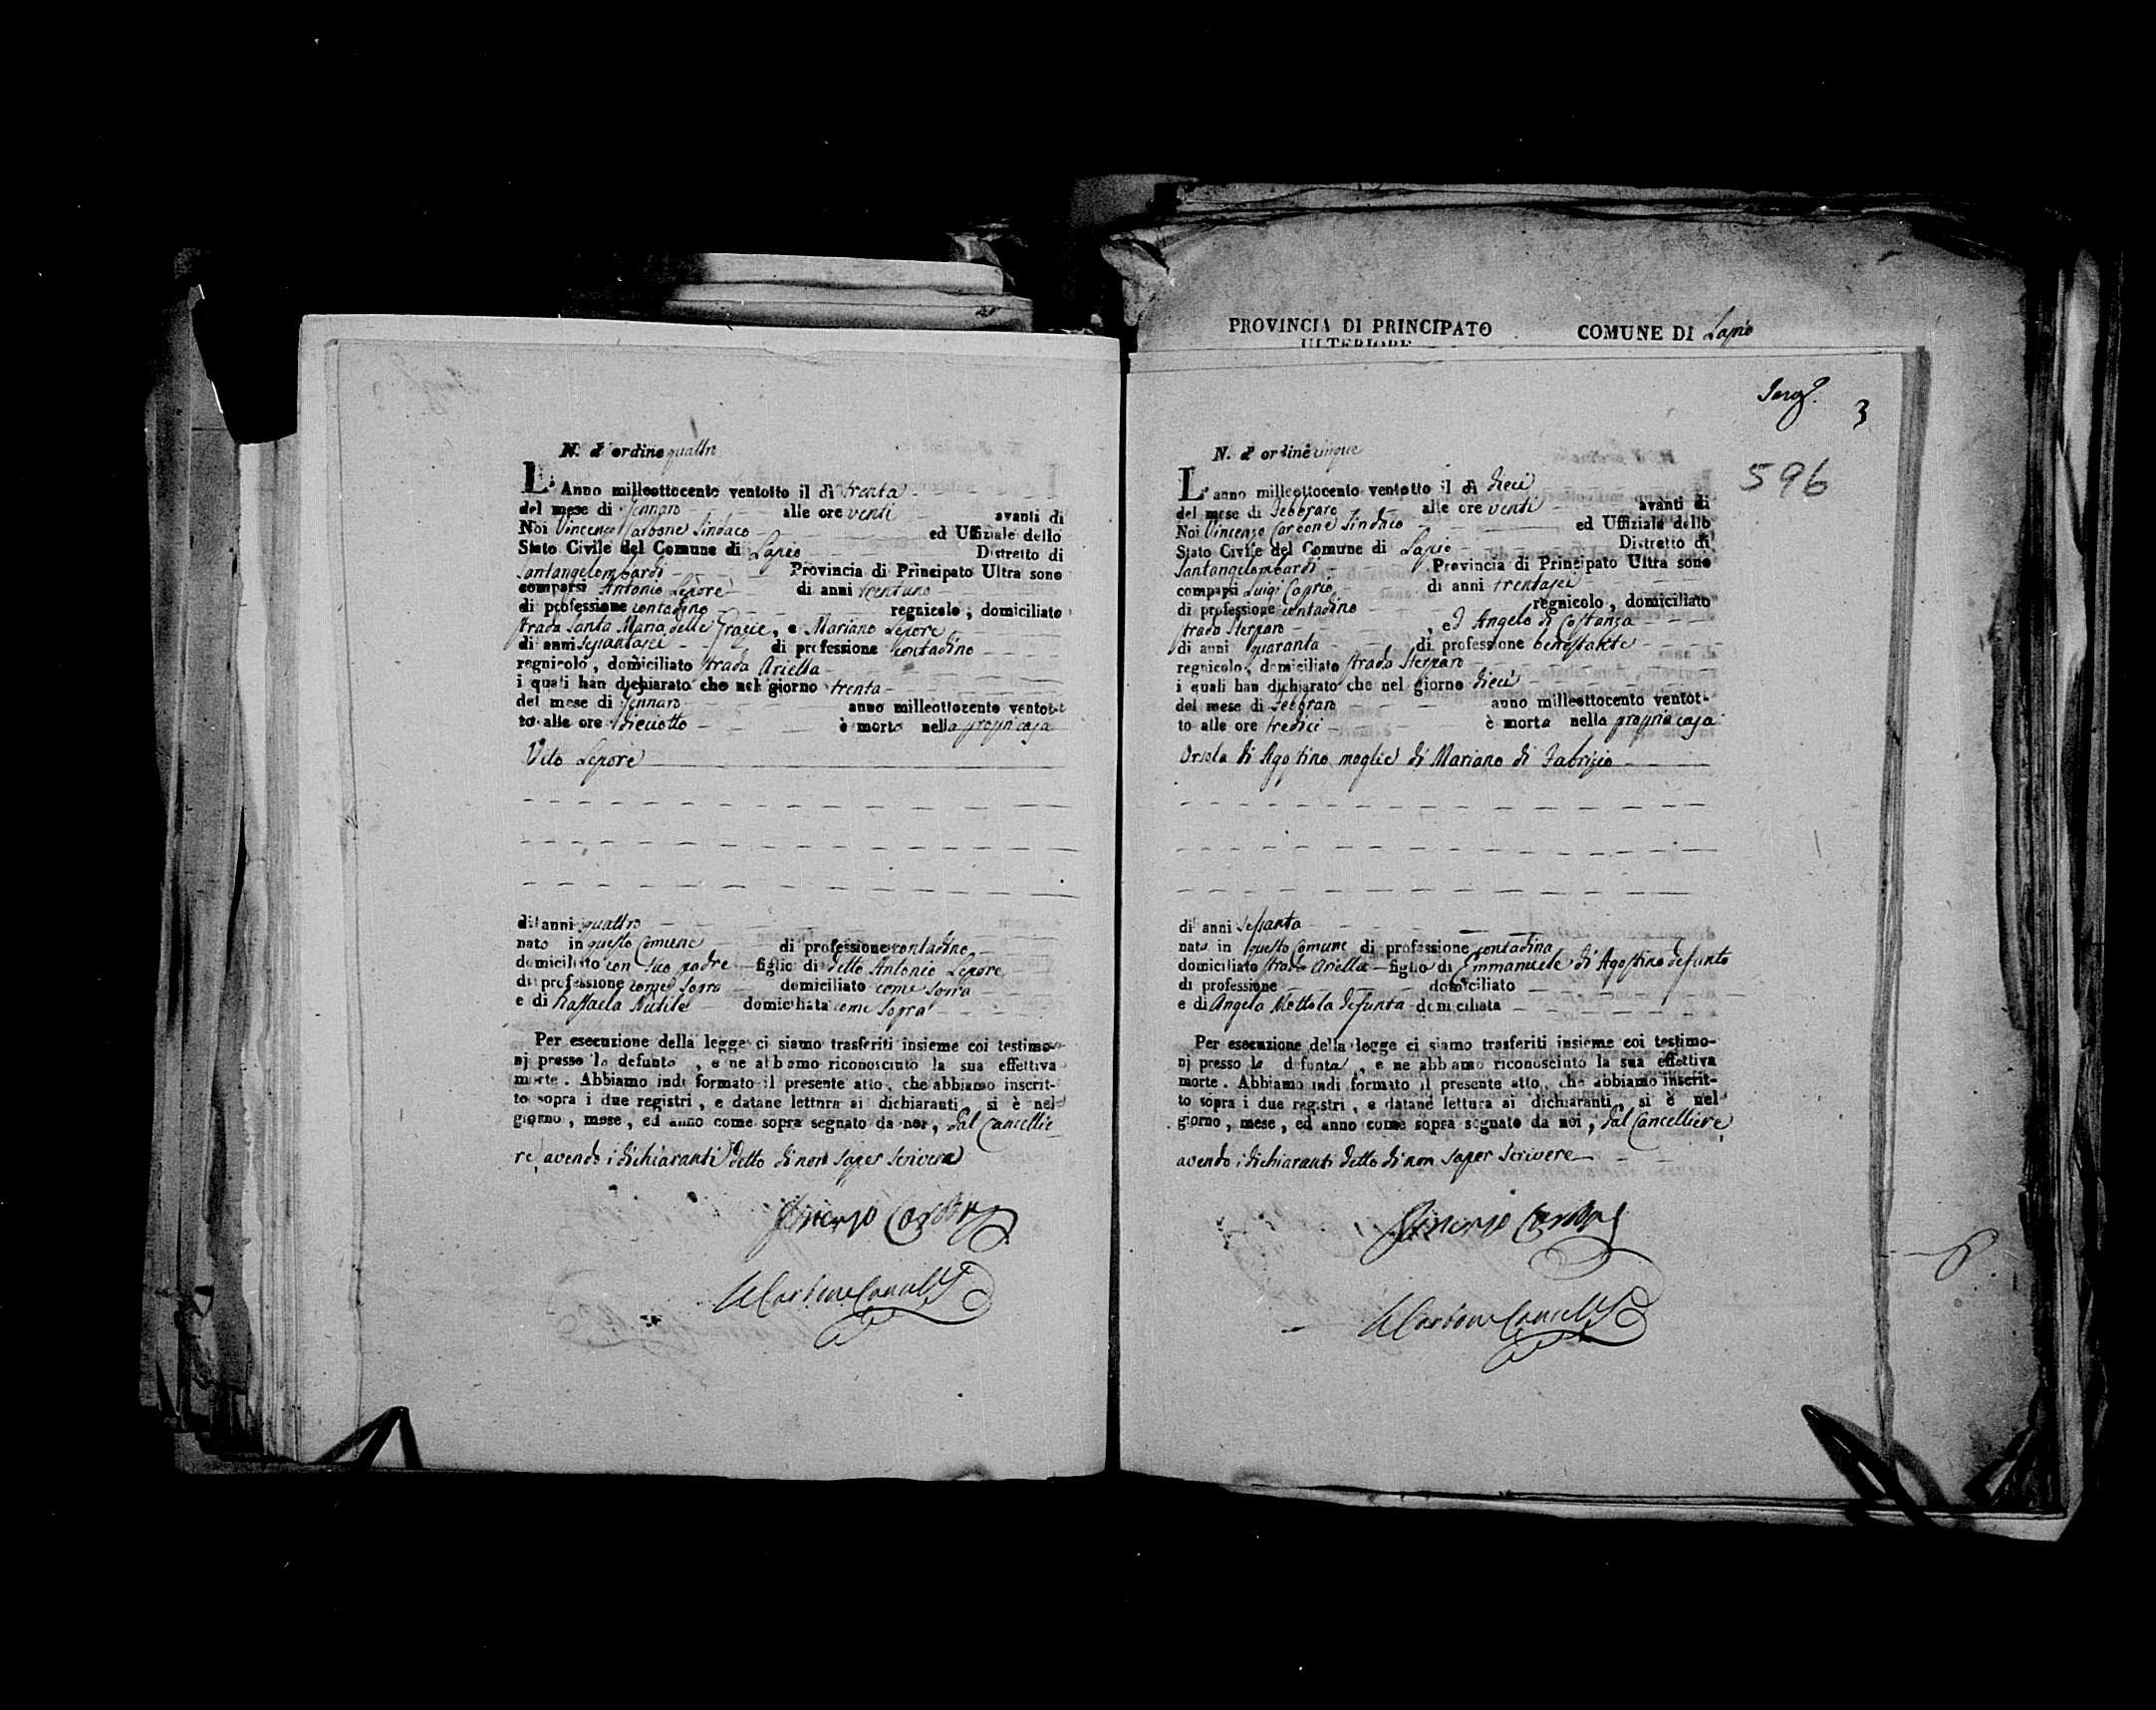 PROVINCIA DI PRINCIPATO COMUNE DI Lapio
ULTERIORE
N. d'ordine quattro
L'Anno milleottocento ventotto il dì trenta
del mese di Gennaro alle ore venti avanti di
Noi Vincenzo Carbone Sindaco ed Uffiziale dello
Stato Civile del Comune di Lapio Distretto di
Santangelombardi Provincia di Principato Ultra sono
comparsi Antonio Lepore di anni trentuno
di professione contadino regnicolo, domiciliato
strada Santa Maria delle Grazie, e Mariano Lepore
di anni sessantasei di professione contadino
regnicolo, domiciliato strada Ariella
i quali han dichiarato che nel giorno trenta
del mese di Gennaro anno milleottocento ventot-
to alle ore dieciotto è morto nella propri casa
Vito Lepore
di anni quattro
nato in questo Comune di professione contadino
domiciliato con suo padre figlio di detto Antonio Lepore
di professione come sopra domiciliato come sopra
e di Raffaela Nutile domiciliata come sopra
Per esecuzione della legge ci siamo trasferiti insieme coi testimo-
nj presso lo defunto, e ne abbiamo riconosciuto la sua effettiva
morte. Abbiamo indi formato il presente atto, che abbiamo inscrit-
to sopra i due registri, e datane lettura ai dichiaranti, si è nel
giorno, mese, ed anno come sopra segnato da noi, dal Cancellie
re, avendo i dichiaranti detto di non saper scrivere
Vincenzo Carbone
Carbone Cancell
3
596
N. d'ordine cinque
L'anno milleottocento ventotto il dì dieci
del mese di Febbraro alle ore venti avanti di
Noi Vincenzo Carbone Sindaco ed Uffiziale dello
Stato Civile del Comune di Lapio Distretto di
Santangelombardi Provincia di Principato Ultra sono
comparsi Luigi Caprio di anni trentasei
di professione contadino regnicolo, domiciliato
strada Sterparo, ed Angelo di Costanza
di anni quaranta di professione benestante
regnicolo, domiciliato strada Sterparo
i quali han dichiarato che nel giorno dieci
del mese di Febbraro anno milleottocento ventot-
to alle ore tredici è morta nella propria casa
Orsola di Agostino moglie di Mariano di Fabrizio
di anni sessanta
nata in questo Comune di professione contadina
domiciliato strada Ariella figlio di Emmanuele di Agostino defunto
di professione domiciliato
e di Angela Mottola defunta domiciliata
Per esecuzione della legge ci siamo trasferiti insieme coi testimo-
nj presso la defunta, e ne abbiamo riconosciuto la sua effettiva
morte. Abbiamo indi formato il presente atto, che abbiamo inscrit-
to sopra i due registri, e datane lettura ai dichiaranti, si è nel
giorno, mese, ed anno come sopra segnato da noi, dal Cancelliere,
avendo i dichiaranti detto di non saper scrivere
Vincenzo Carbone
Carbone Cancell